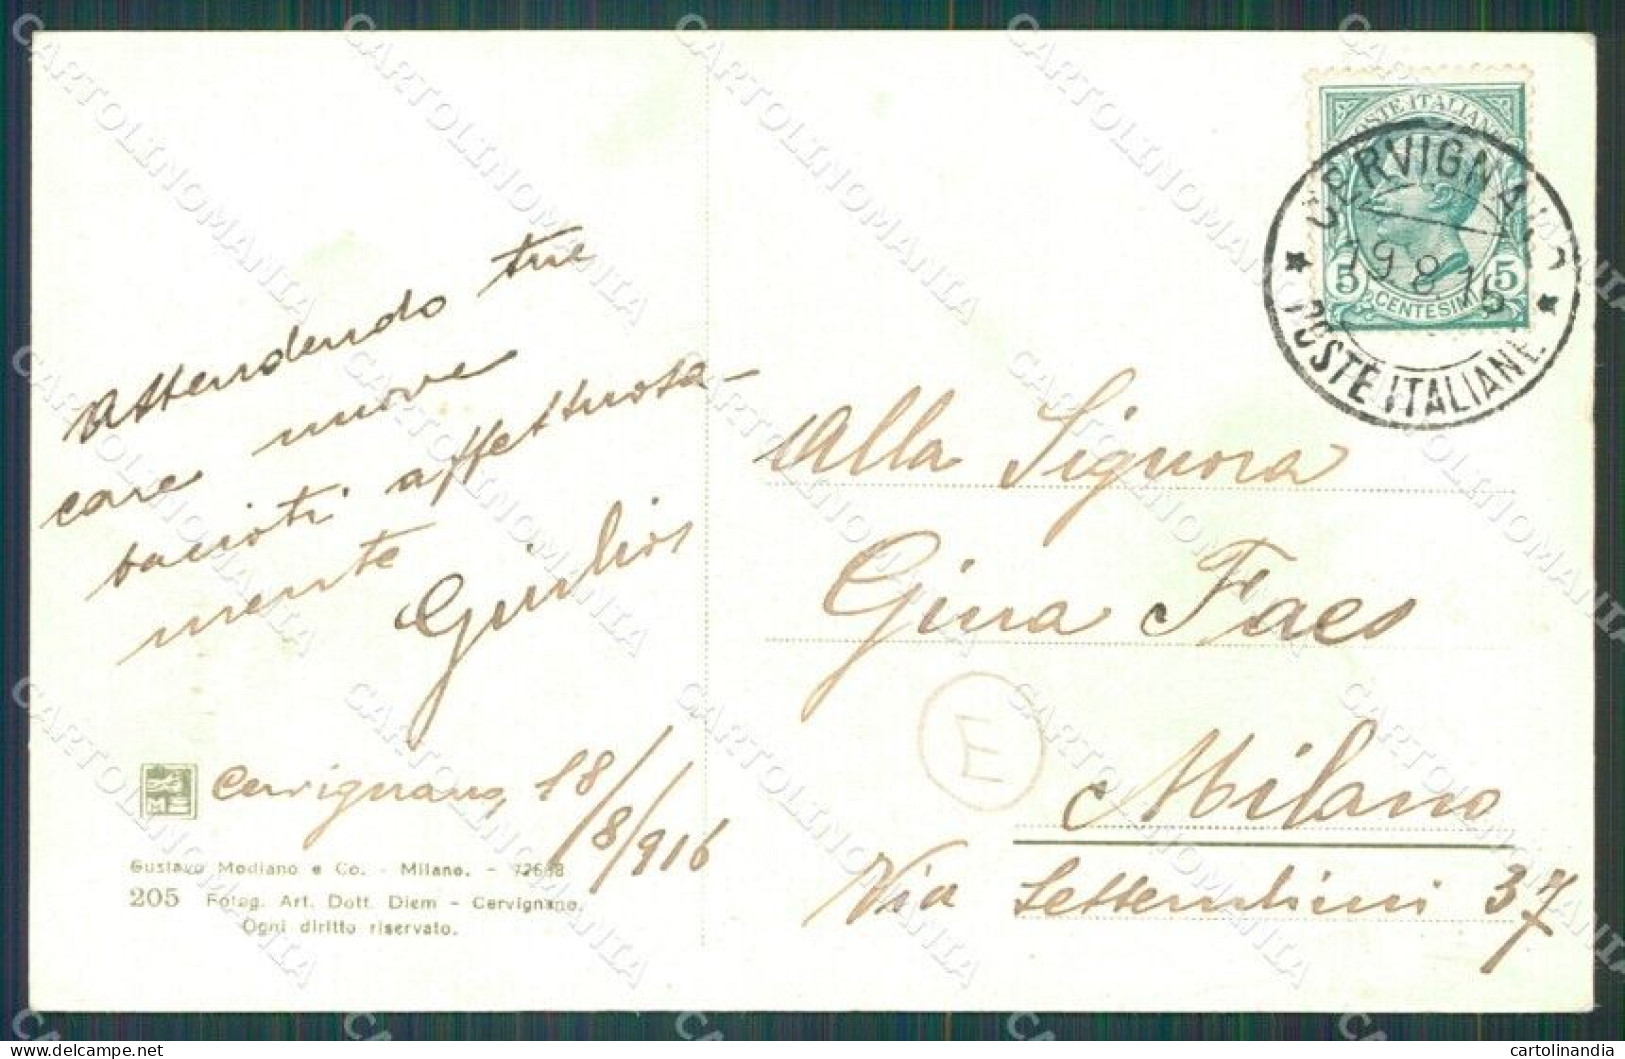 POSTE ITALIANE
CERVIGNANO
19.8.16
5 CENTESIMI 5
POSTE ITALIANE
Attendendo tue
care nuove
bacioti affettuosa-
mente
Giulio
Cervignano, 18/8/916
Gustavo Modiano e Co. - Milano. - 72688
205 Fotog. Art. Dott. Diem - Cervignano.
Ogni diritto riservato.
Alla Signora
Gina Faes
E
Milano
Via Settembrini 37
CARTOLINOMANIA
cartolinandia